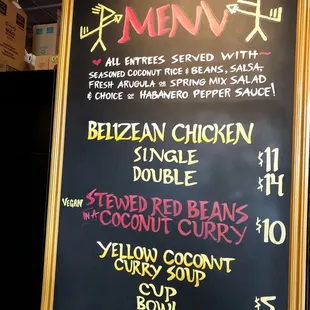 MENU
ALL ENTREES SERVED WITH
SEASONED COCONUT RICE & BEANS, SALSA,
FRESH ARUGULA OR SPRING MIX SALAD
& CHOICE OF HABANERO PEPPER SAUCE!
BELIZEAN CHICKEN
SINGLE $11
DOUBLE $14
VEGAN STEWED RED BEANS
IN A COCONUT CURRY $10
YELLOW COCONUT
CURRY SOUP
CUP
BOWL $5